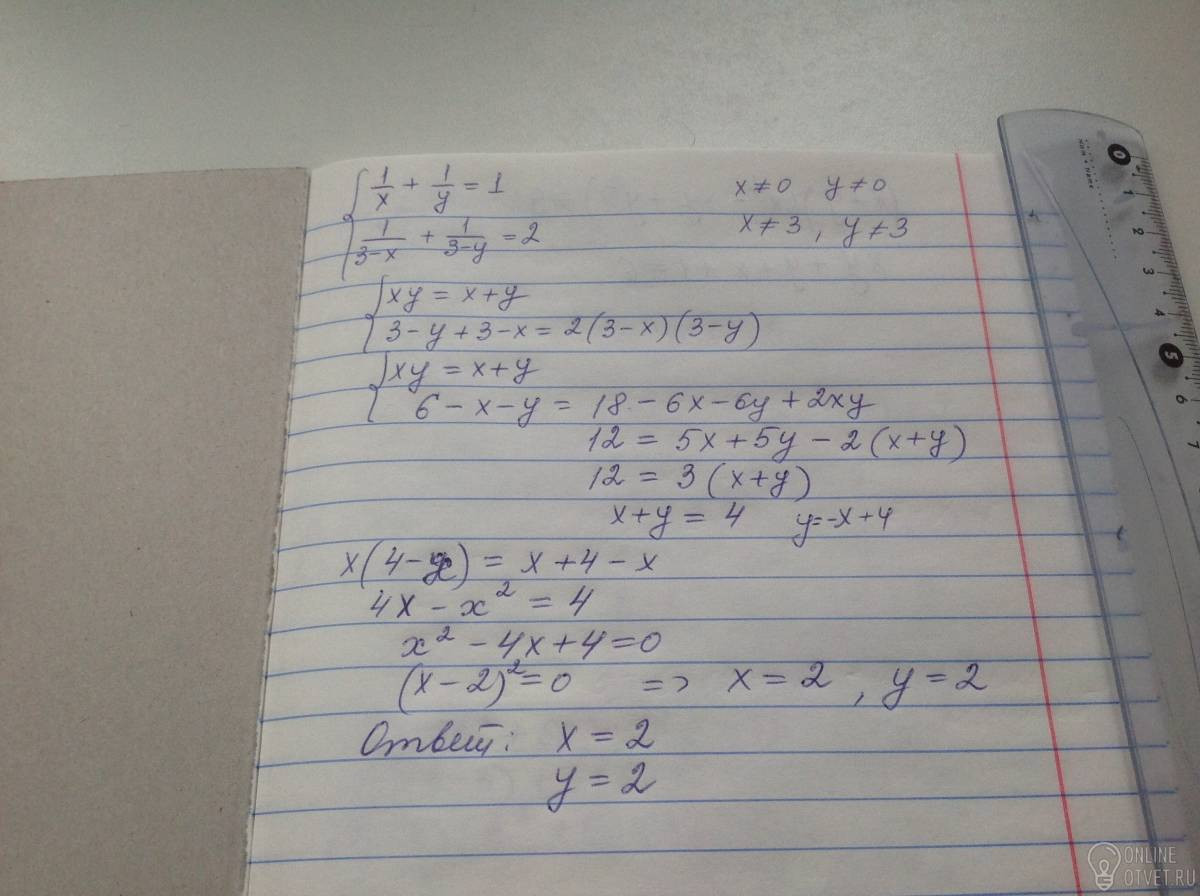 1/x + 1/y = 1 x ≠ 0 y ≠ 0
1/(3-x) + 1/(3-y) = 2 x ≠ 3, y ≠ 3
xy = x+y
3-y+3-x = 2(3-x)(3-y)
xy = x+y
6-x-y = 18-6x-6y+2xy
12 = 5x+5y-2(x+y)
12 = 3(x+y)
x+y = 4 y=-x+4
x(4-x) = x+4-x
4x-x² = 4
x²-4x+4=0
(x-2)²=0 => x=2, y=2
Ответ: x=2
y=2
0
1
2
3
4
5
6
7
ONLINE
OTVET.RU